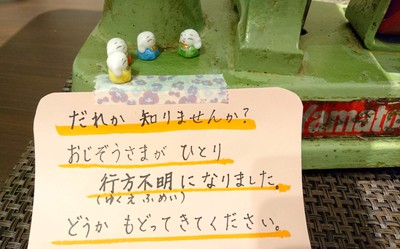 だれか 知りませんか?
おじぞうさまが ひとり
行方不明になりました。
(ゆくえふめい)
どうか もどってきてください。
Yamato